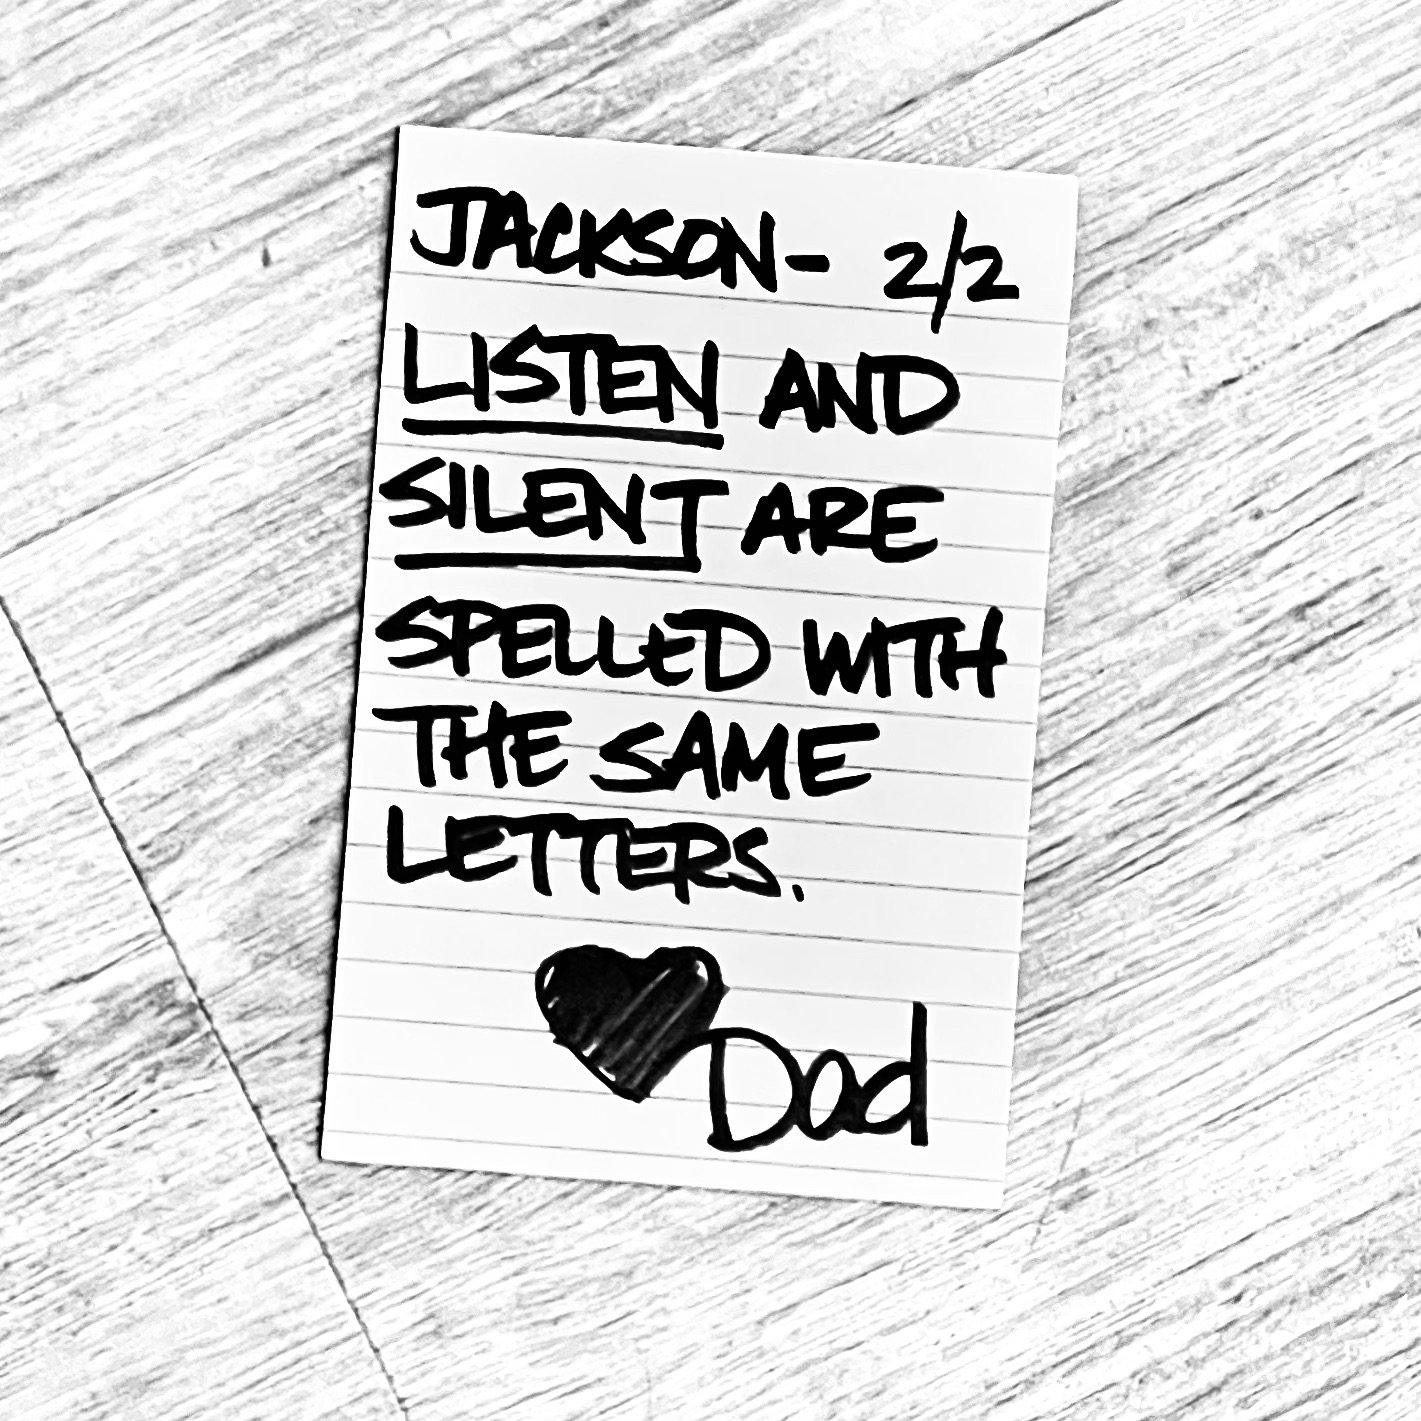 JACKSON- 2/2
LISTEN AND
SILENT ARE
SPELLED WITH
THE SAME
LETTERS.
Dad